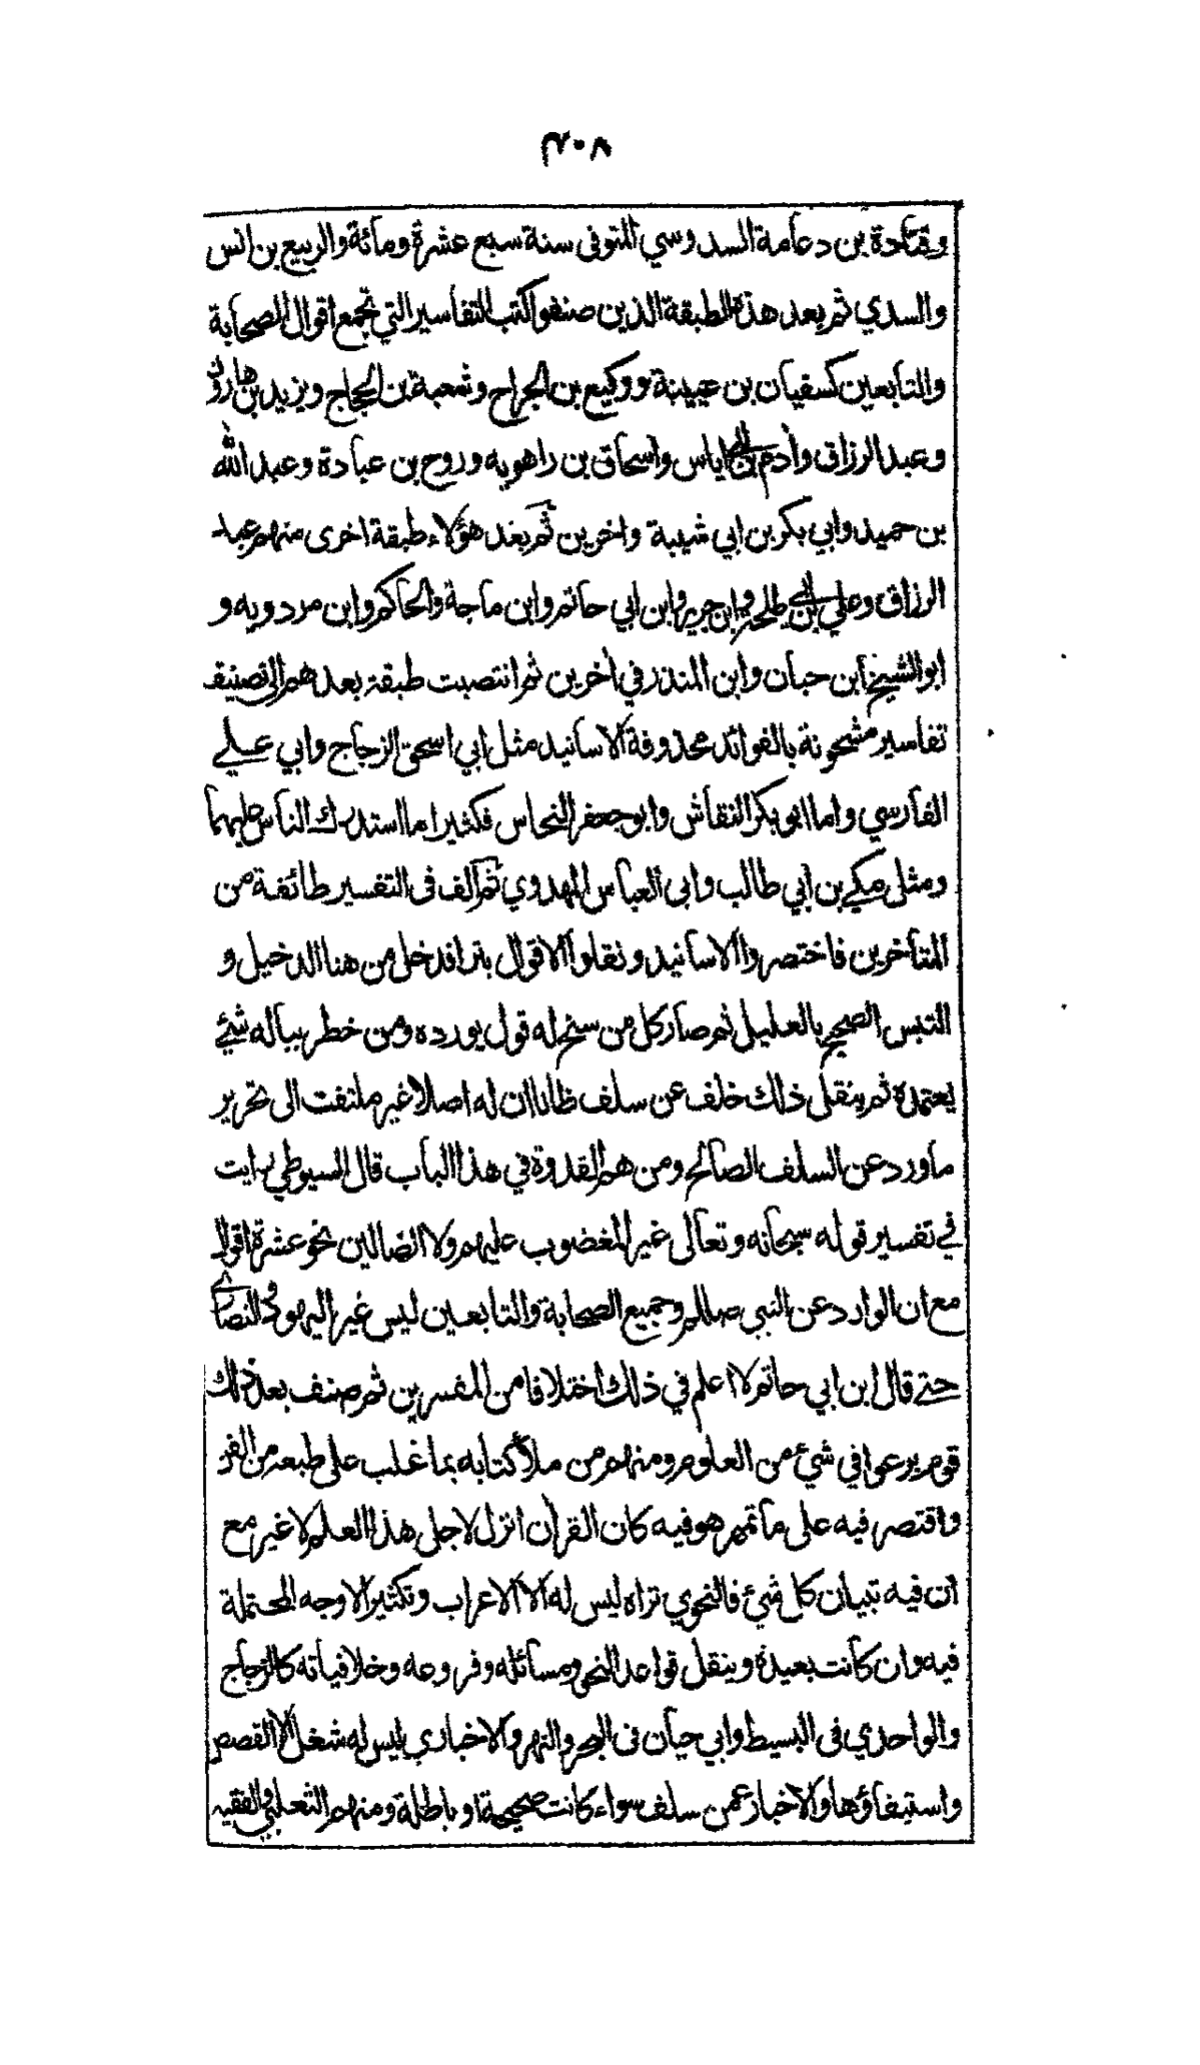 ٣٠٧
وقتادة بن دعامة السدوسي المتوفى سنة سبع عشرة ومائة والربيع بن انس
والسدي ثم بعد هذه الطبقة الذين صنفوا كتب التفاسير التي تجمع اقوال الصحابة
والتابعين كسفيان بن عيينة ووكيع بن الجراح وشعبة بن الحجاج ويزيد بن هارون
وعبد الرزاق وأدم بن ابي اياس واسحاق بن راهويه وروح بن عبادة وعبد الله
بن حميد وابي بكر بن ابي شيبة واخرين ثم بعد هؤلاء طبقة اخرى منهم عبد
الرزاق وعلي بن ابي طلحة وابن جرير وابن ابي حاتم وابن ماجة والحاكم وابن مردويه و
ابو الشيخ ابن حبان وابن المنذر في أخرين ثم انتصبت طبقة بعدهم الى تصنيف
تفاسير مشحونة بالفوائد محذوفة الاسانيد مثل ابي اسحق الزجاج وابي علي
الفارسي واما ابو بكر النقاش وابو جعفر النحاس فكثيرا ما استدرك الناس عليهما
ومثل مكي بن ابي طالب وابي العباس المهدوي ثم ألف في التفسير طائفة من
المتأخرين فاختصروا الاسانيد ونقلوا الاقوال بترا فدخل من هنا الدخيل و
التبس الصحيح بالعليل ثم صار كل من سنح له قول يورده ومن خطر بباله شيئ
يعتمده ثم ينقل ذلك خلف عن سلف ظانا ان له اصلا غير ملتفت الى تحرير
ما ورد عن السلف الصالح ومن هم القدوة في هذا الباب قال السيوطي رايت
في تفسير قوله سبحانه وتعالى غير المغضوب عليهم ولا الضالين نحو عشرة اقوال
مع ان الوارد عن النبي صلالم وجميع الصحابة والتابعين ليس غير اليهود والنصارى
حتى قال ابن ابي حاتم لا اعلم في ذلك اختلافا من المفسرين ثم صنف بعد ذلك
قوم برعوا في شيئ من العلوم ومنهم من ملأ كتابه بما غلب على طبعه من الفن
واقتصر فيه على ما تمهر هو فيه كان القرأن انزل لاجل هذا العلم لا غير مع
ان فيه تبيان كل شيئ فالنحوي تراه ليس له الا الاعراب وتكثير الاوجه المحتملة
فيه وان كانت بعيدة وينقل قواعد النحو ومسائله وفروعه وخلافياته كالزجاج
والواحدي في البسيط وابي حيان في البحر والنهر والاخباري ليس له شغل الا القصص
واستيفاؤها والاخبار عمن سلف سواء كانت صحيحة او باطلة ومنهم الثعلبي والفقيه